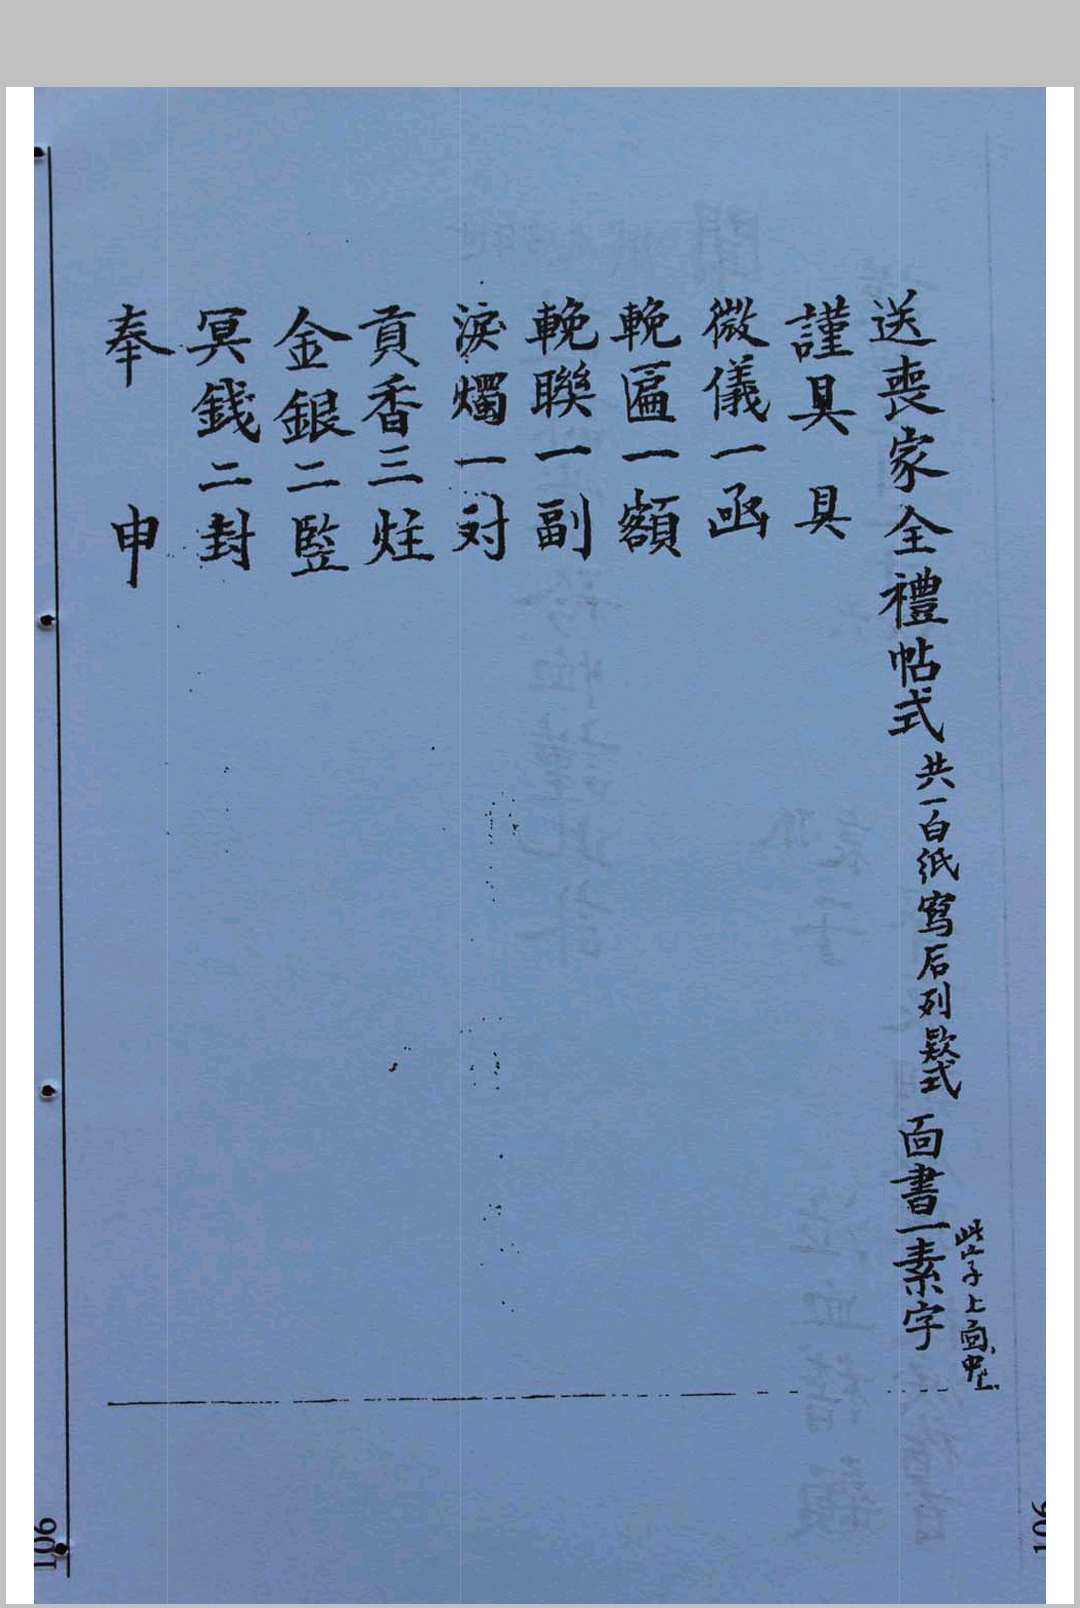 送喪家全禮帖式 共一百紙寫后列欵式 面書一素字
此字上面中上
謹具 具
微儀一函
輓匾一額
輓聯一副
淚燭一对
貢香三炷
金銀二
冥錢二封
奉 申
106
106